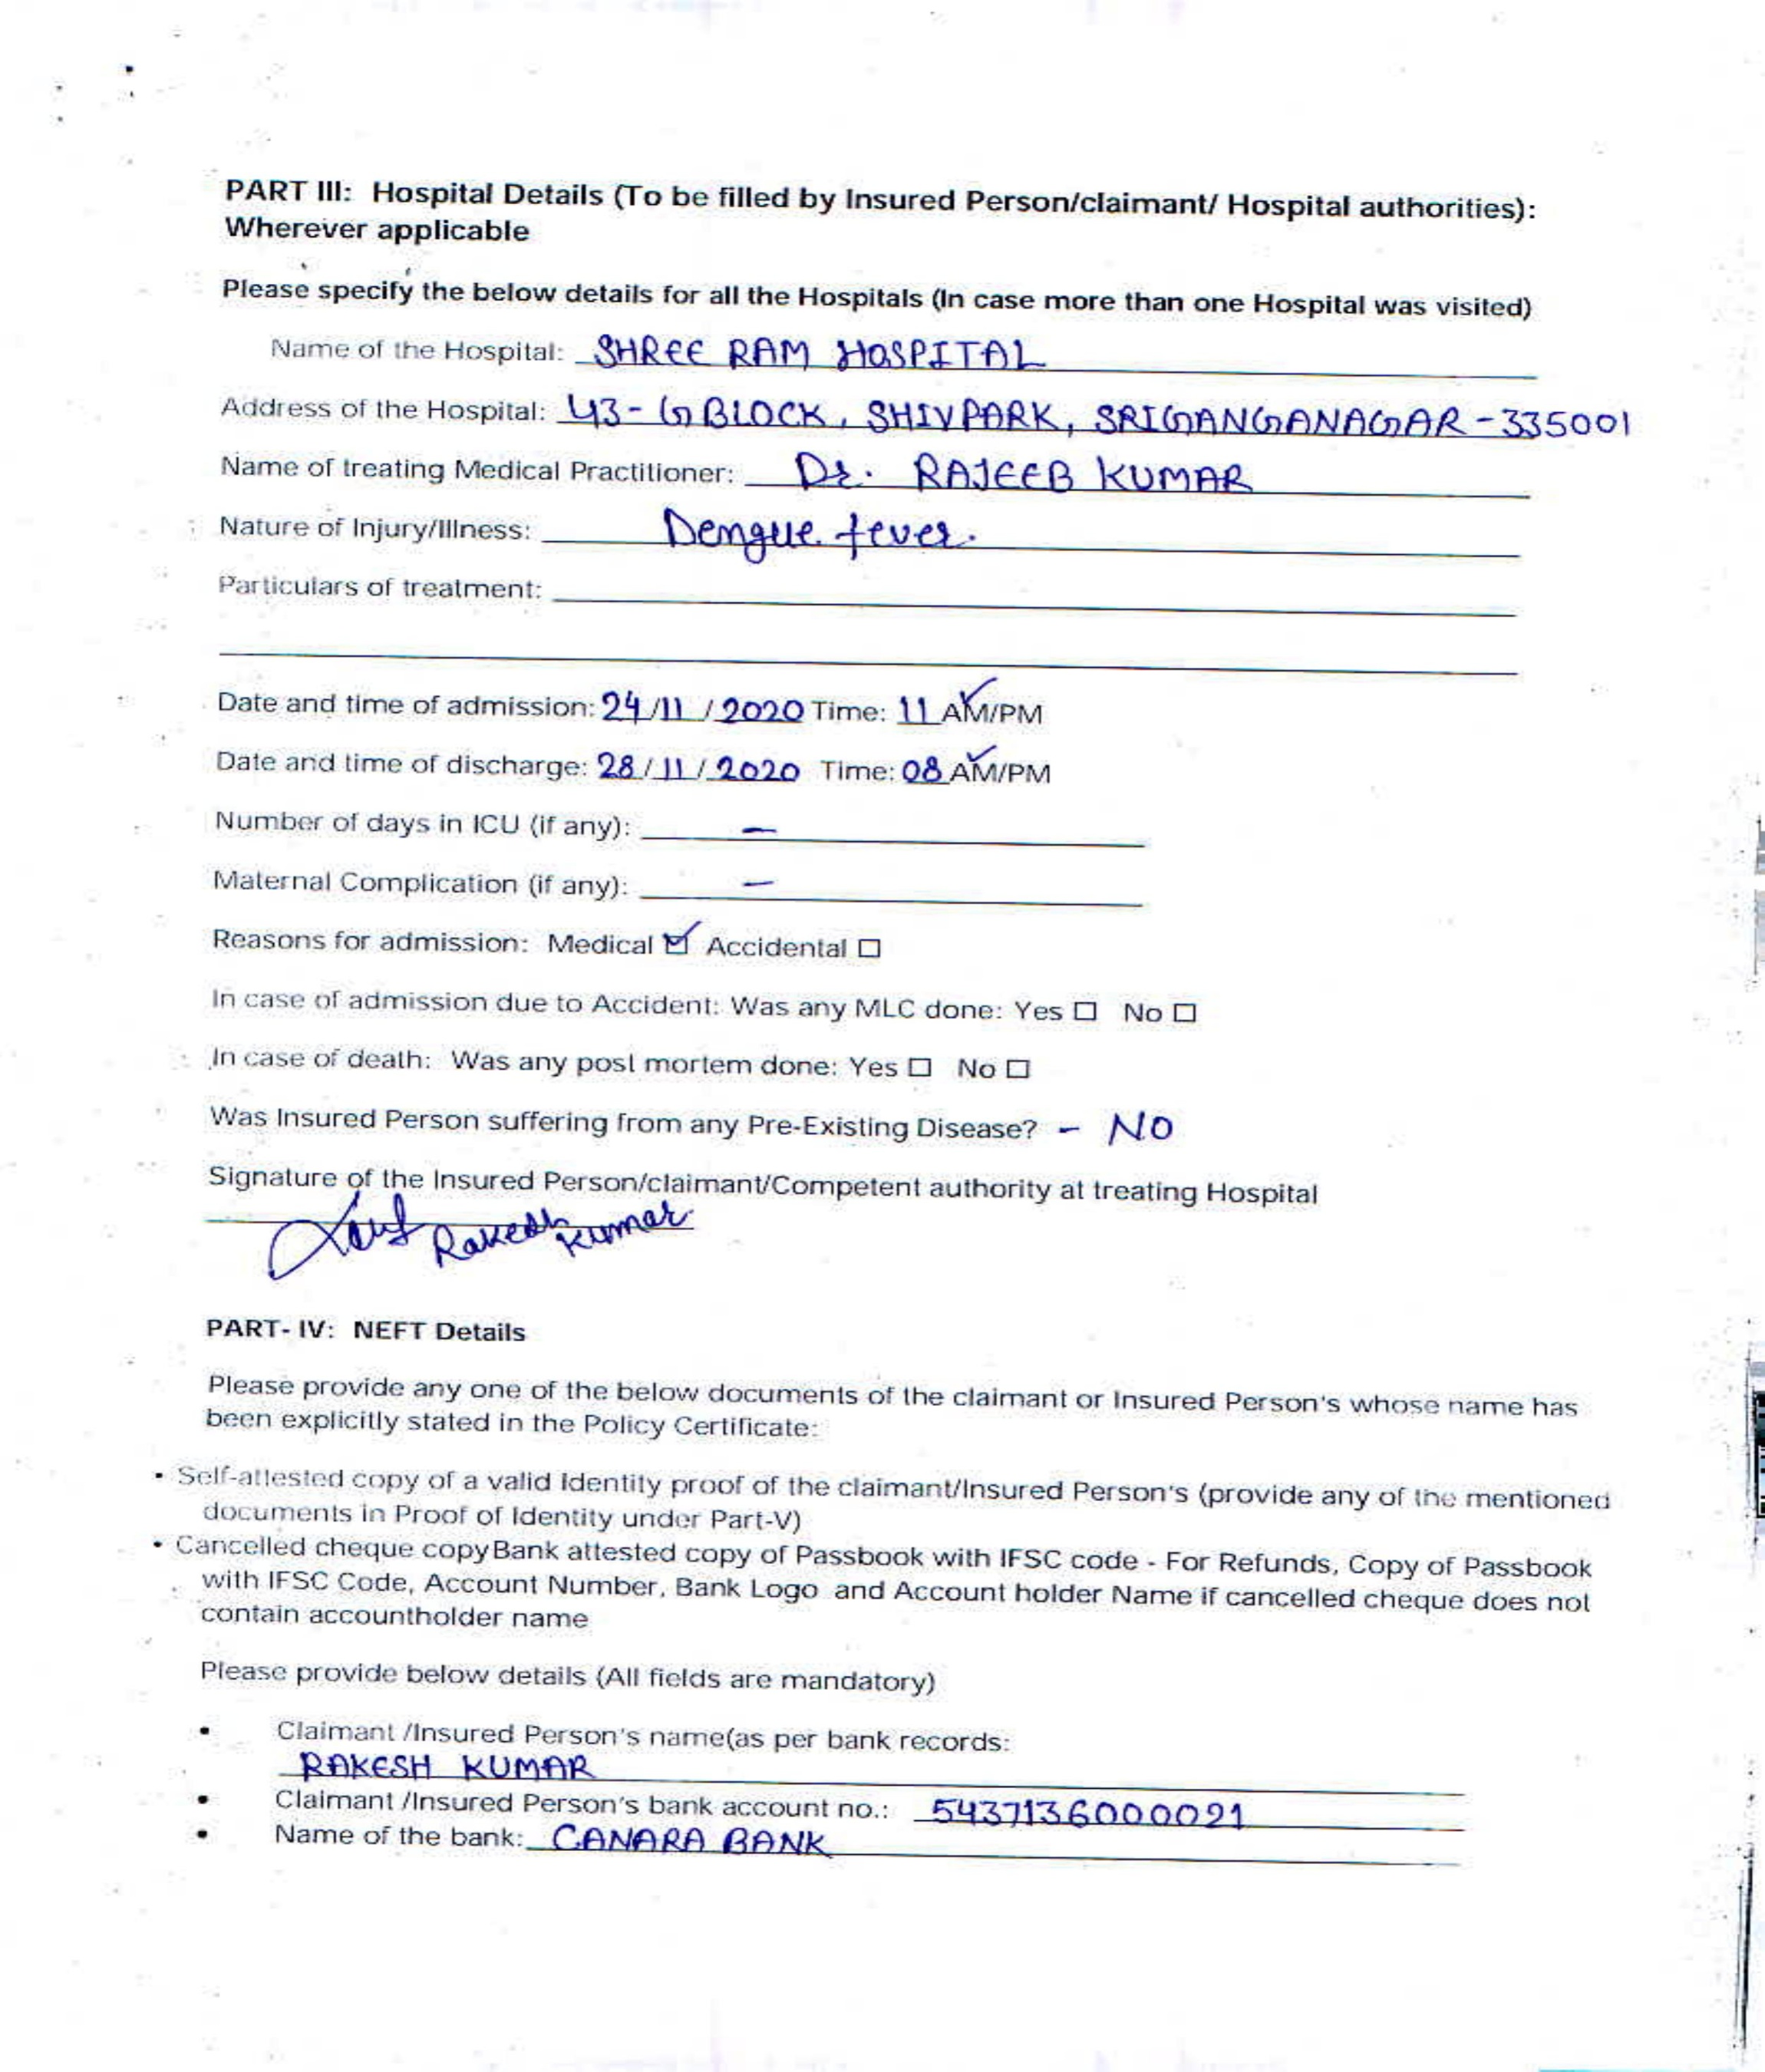 PART III: Hospital Details (To be filled by Insured Person/claimant/ Hospital authorities):
Wherever applicable
Please specify the below details for all the Hospitals (In case more than one Hospital was visited)
Name of the Hospital: SHREE RAM HOSPITAL
Address of the Hospital: 43-G BLOCK, SHIV PARK, SRIGANGANAGAR-335001
Name of treating Medical Practitioner: Dr. RAJEEB KUMAR
Nature of Injury/Illness: Dengue fever.
Particulars of treatment:
Date and time of admission: 24/11/2020 Time: 11 AM/PM
Date and time of discharge: 28/11/2020 Time: 08 AM/PM
Number of days in ICU (if any): -
Maternal Complication (if any): -
Reasons for admission: Medical ☑ Accidental ☐
In case of admission due to Accident: Was any MLC done: Yes ☐ No ☐
In case of death: Was any post mortem done: Yes ☐ No ☐
Was Insured Person suffering from any Pre-Existing Disease? - NO
Signature of the Insured Person/claimant/Competent authority at treating Hospital
Rakesh Kumar
PART- IV: NEFT Details
Please provide any one of the below documents of the claimant or Insured Person's whose name has
been explicitly stated in the Policy Certificate:
• Self-attested copy of a valid Identity proof of the claimant/Insured Person's (provide any of the mentioned
documents in Proof of Identity under Part-V)
• Cancelled cheque copy Bank attested copy of Passbook with IFSC code - For Refunds, Copy of Passbook
with IFSC Code, Account Number, Bank Logo and Account holder Name if cancelled cheque does not
contain accountholder name
Please provide below details (All fields are mandatory)
• Claimant /Insured Person's name(as per bank records:
RAKESH KUMAR
• Claimant /Insured Person's bank account no.: 5437136000021
• Name of the bank: CANARA BANK